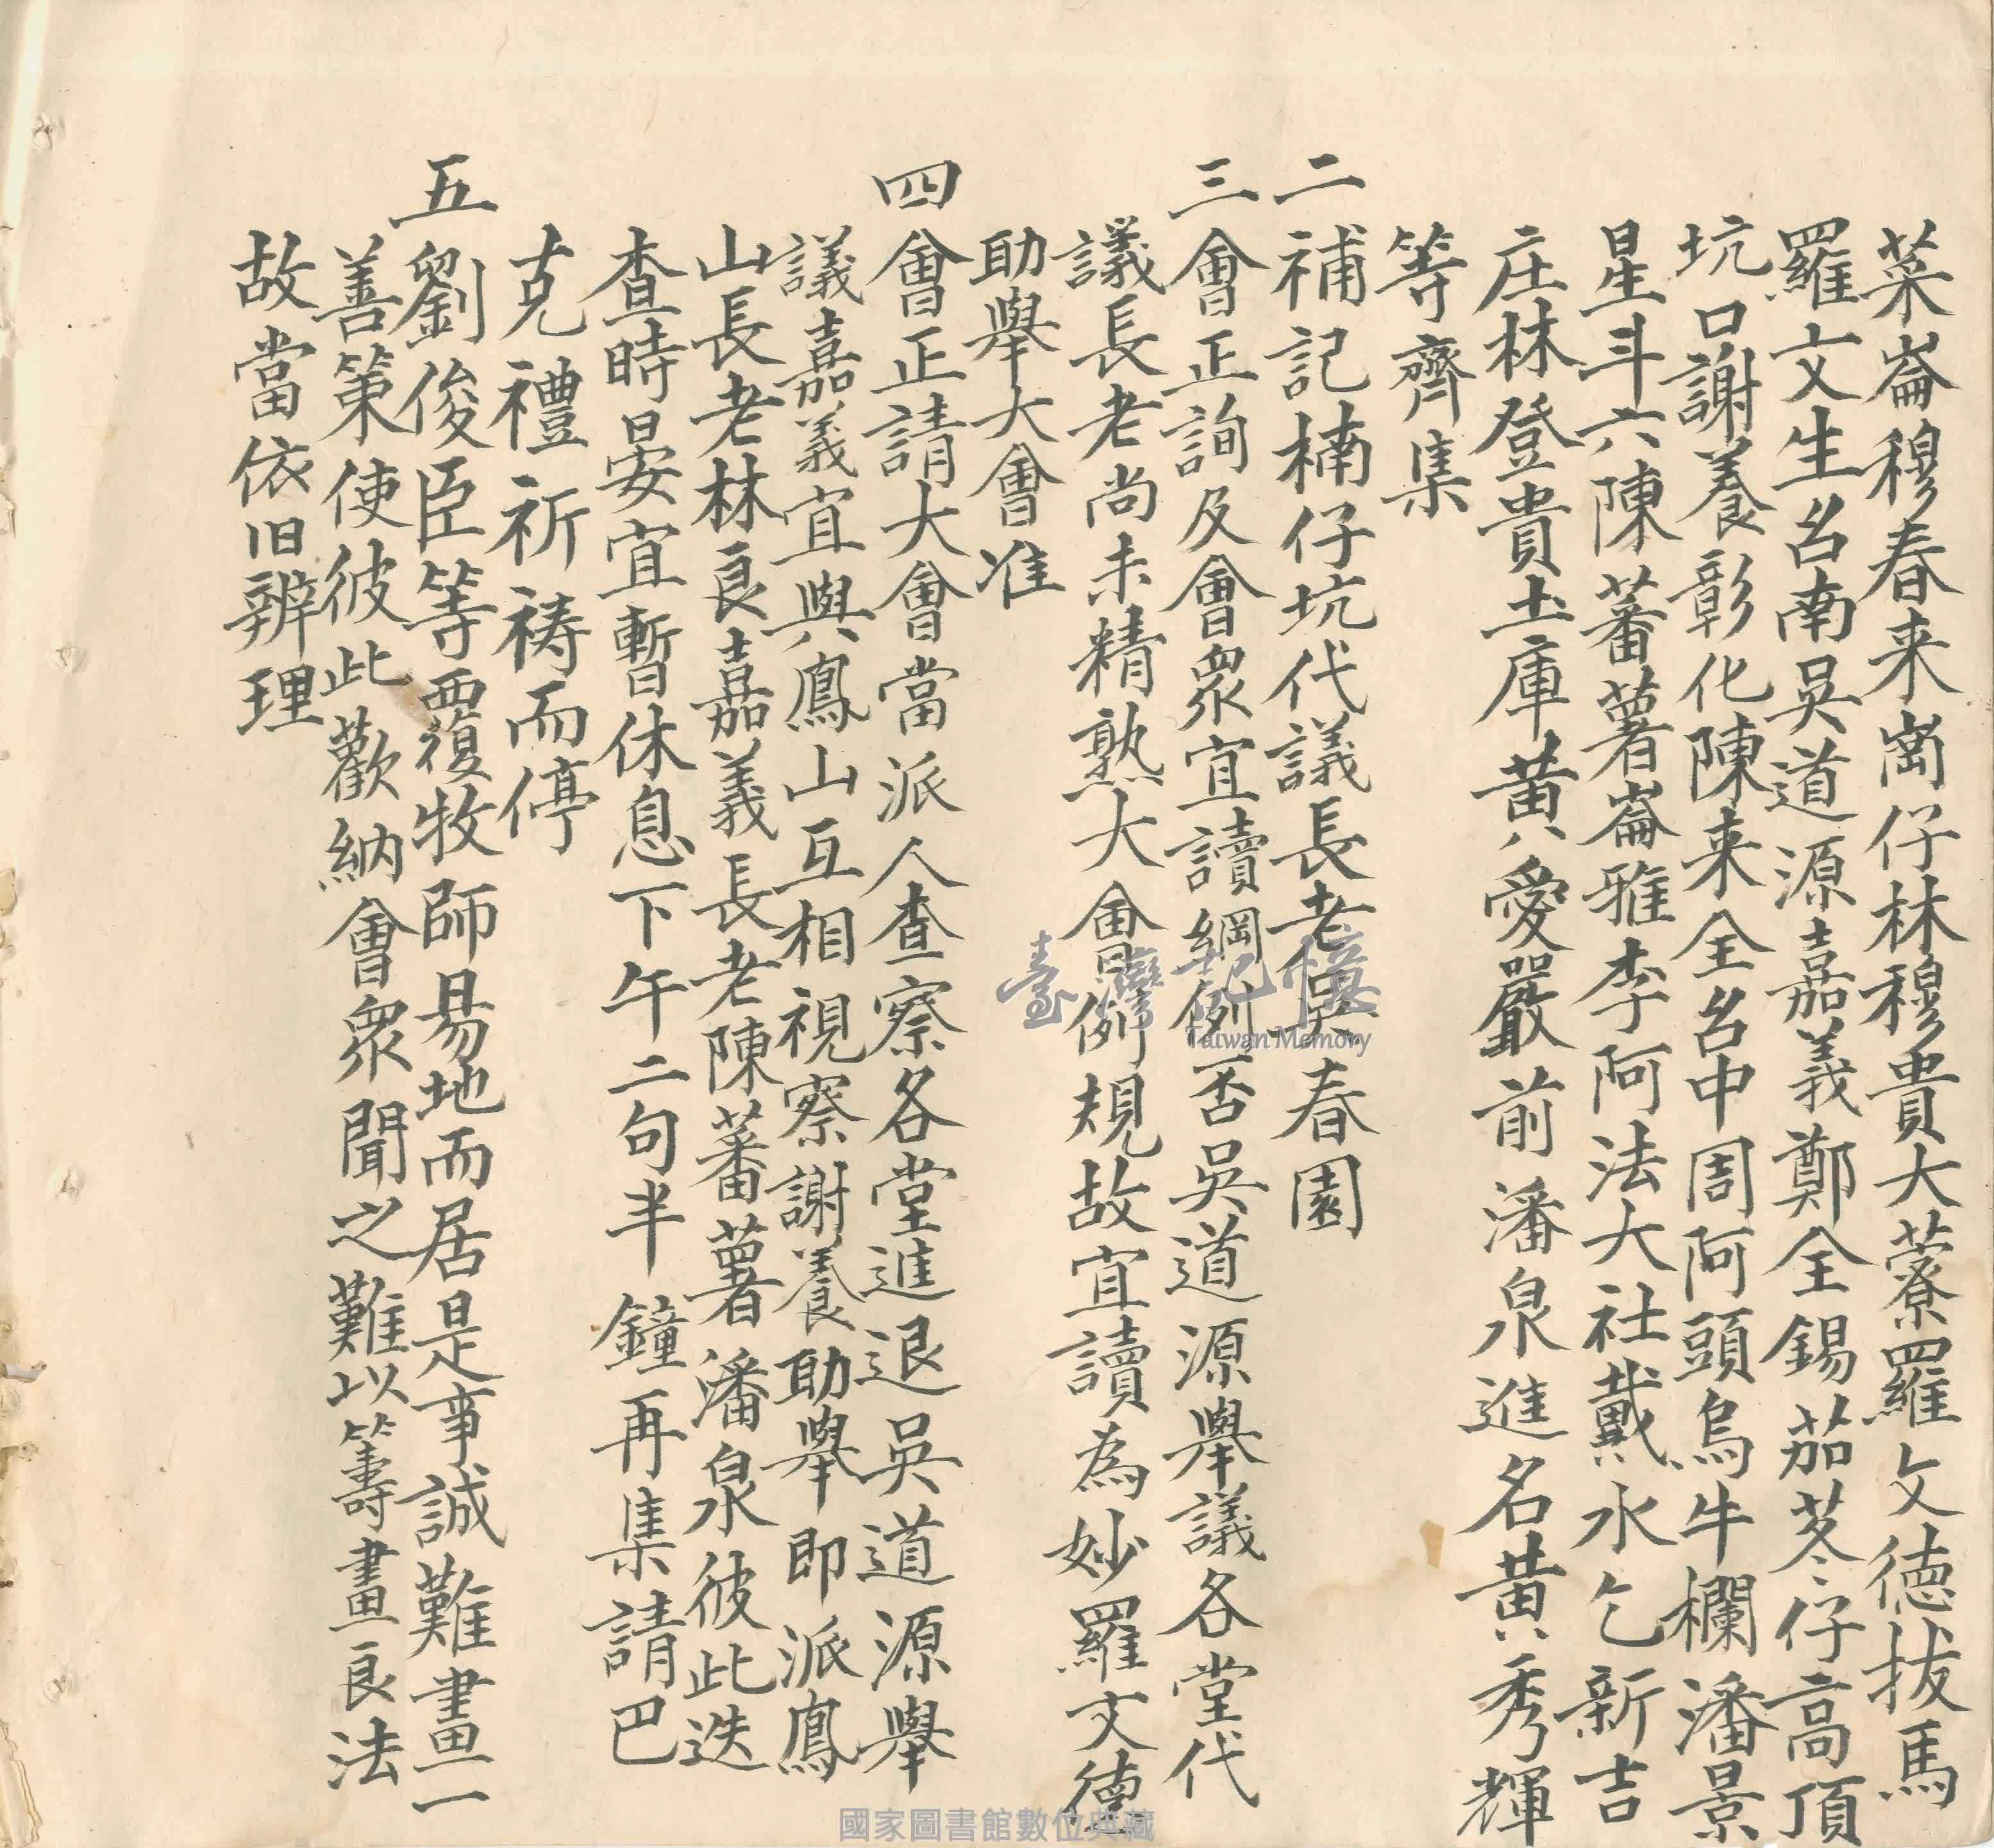 菜崙穆春来崗仔林穆貴大藔羅文徳拔馬
羅文生台南吳道源嘉義鄭全錫茄苳仔高頂
坑口謝養彰化陳来全台中周阿頭烏牛欄潘景
星斗六陳蕃薯崙雅李阿法大社戴水乞新吉
庄林登貴土庫黃愛嚴前潘泉進名黃秀輝
等齊集
二補記楠仔坑代議長老吳春園
三會正詢及會眾宜讀綱例否吳道源舉議各堂代
議長老尚未精熟大會例規故宜讀為妙羅文徳
助舉大會准
四會正請大會當派人查察各堂進退吳道源舉
議嘉義宜與鳳山互相視察謝養助舉即派鳳
山長老林良嘉義長老陳蕃薯潘泉彼此迭
查時晏宜暫休息下午二句半鐘再集請巴
克禮祈禱而停
五劉俊臣等覆牧師易地而居是事誠難畫一
善策使彼此歡納會眾聞之難以籌畫良法
故當依旧辦理
臺灣記憶
Taiwan Memory
國家圖書館數位典藏